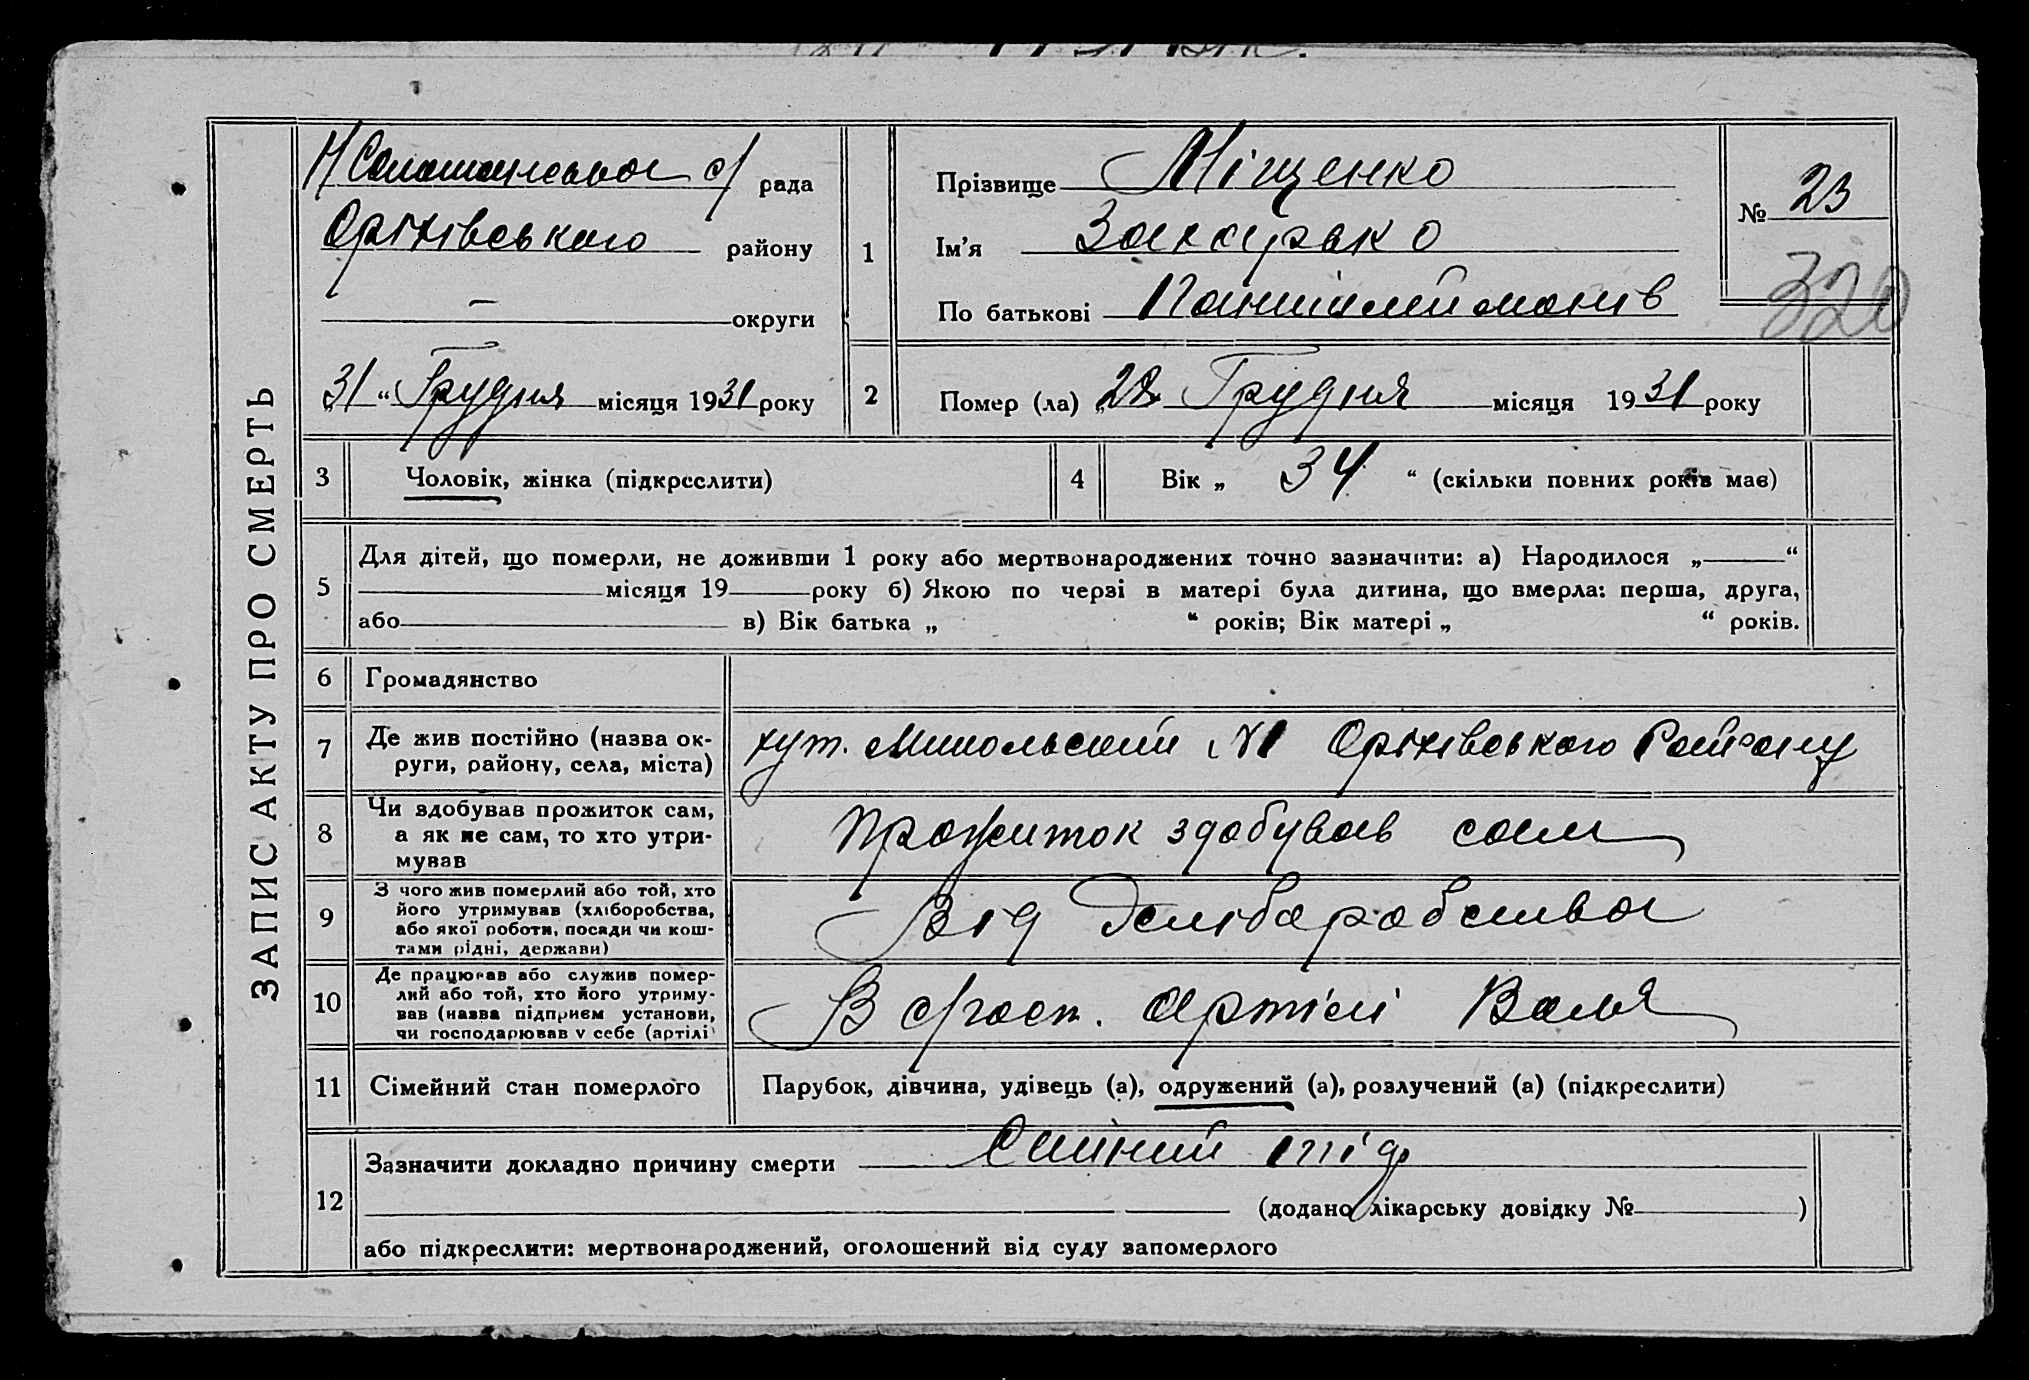 ЗАПИС АКТУ ПРО СМЕРТЬ
с/ рада
Оріхівського району
— округи
„31“ Грудня місяця 1931 року
1
Прізвище Міщенко
Ім'я
По батькові
№ 23
320
2
Помер (ла) „28 Грудня місяця 1931 року
3
Чоловік, жінка (підкреслити)
4
Вік „ 34 “ (скільки повних років має)
5
Для дітей, що померли, не доживши 1 року або мертвонароджених точно зазначити: а) Народилося „ “
місяця 19 року б) Якою по черзі в матері була дитина, що вмерла: перша, друга,
або в) Вік батька „ “ років; Вік матері „ “ років.
6
Громадянство
7
Де жив постійно (назва ок-
руги, району, села, міста)
хут. Микольский №1 Оріхівського Району
8
Чи здобував прожиток сам,
а як не сам, то хто утри-
мував
Прожиток здобував сам
9
З чого жив померлий або той, хто
його утримував (хліборобства,
або якої роботи, посади чи кош-
тами рідні, держави)
Від хліборобства
10
Де працював або служив помер-
лий або той, хто його утриму-
вав (назва підприєм установи,
чи господарював у себе (артілі
В с/госп. Артілі Воля
11
Сімейний стан померлого
Парубок, дівчина, удівець (а), одружений (а), розлучений (а) (підкреслити)
12
Зазначити докладно причину смерти
(додано лікарську довідку № )
або підкреслити: мертвонароджений, оголошений від суду запомерлого